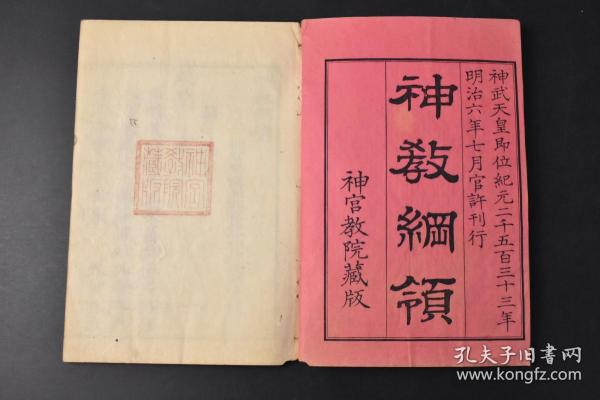 神武天皇即位紀元二千五百三十三年
明治六年七月官許刊行
神教綱領
神宮教院藏版
神宮
教院
藏版
孔夫子旧书网
www.kongfz.com